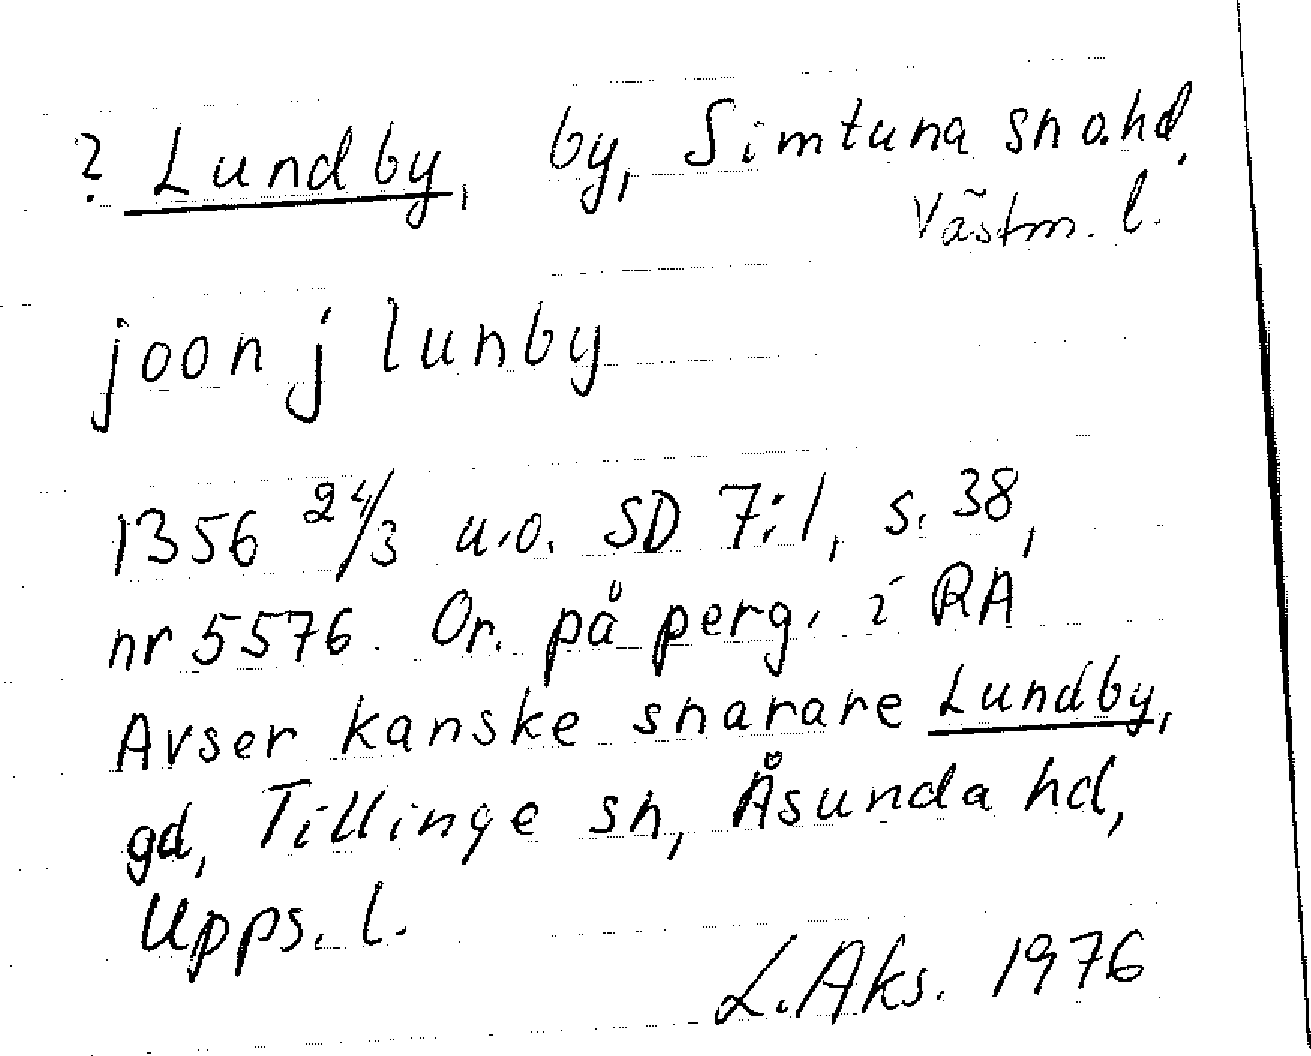 ? Lundby, by, Simtuna sn o. hd,
Västm. l.
joon j lunby
1356 24/3 u.o. SD 7:1, s. 38,
nr 5576. Or. på perg. i RA
Avser kanske snarare Lundby,
gd, Tillinge sn, Åsunda hd,
Upps. l.
L. Aks. 1976